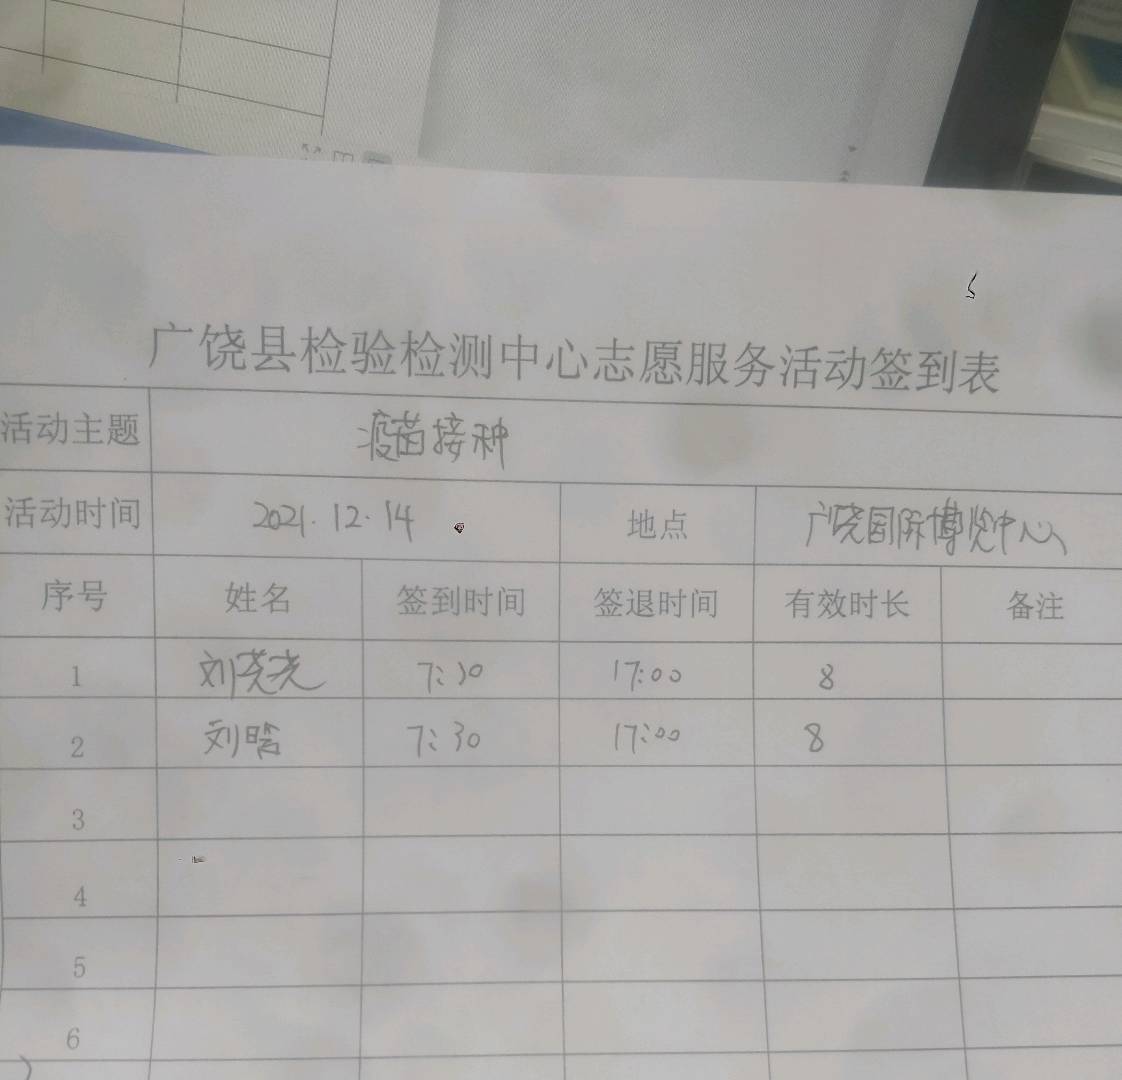 广饶县检验检测中心志愿服务活动签到表
活动主题 疫苗接种
活动时间 2021.12.14 地点 广饶国际博览中心
序号 姓名 签到时间 签退时间 有效时长 备注
1 刘 7:30 17:00 8
2 刘晗 7:30 17:00 8
3
4
5
6